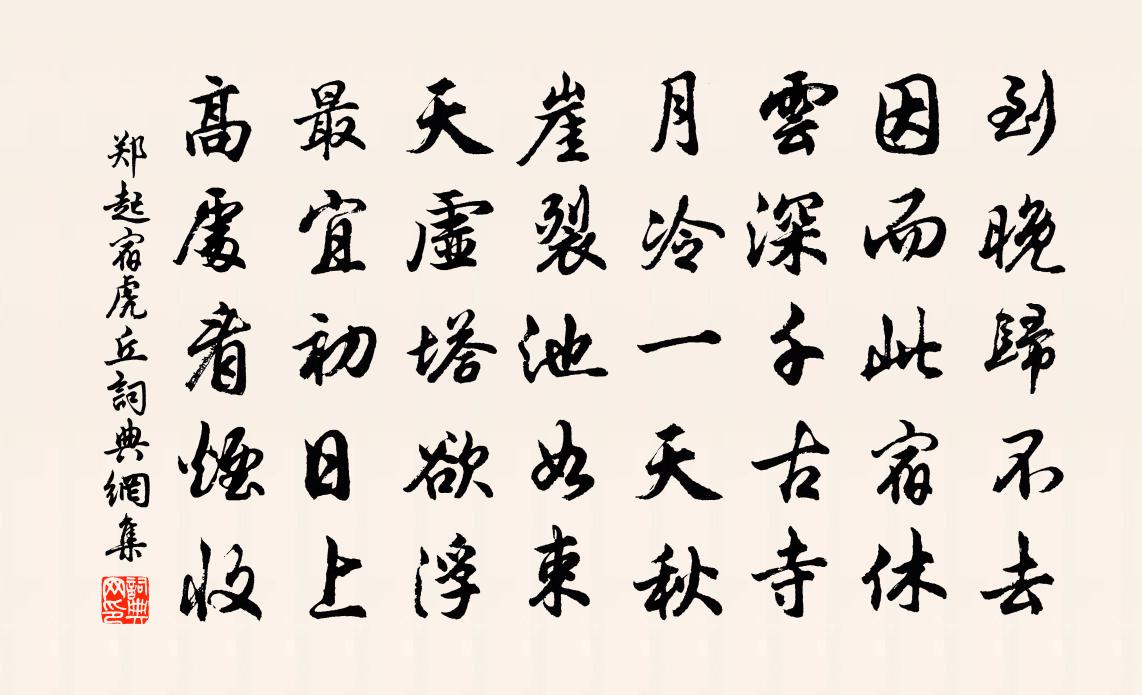 到晚歸不去
因而此宿休
雲深千古寺
月冷一天秋
崖裂池如束
天虛塔欲浮
最宜初日上
高處看煙收
郑起宿虎丘詞典網集
詞典网印